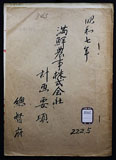 昭和七年
満鮮農事株式会社
計画要項
総督府
2225